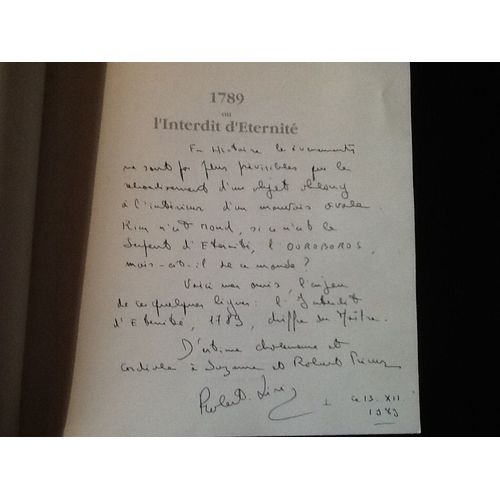 1789
ou
l'Interdit d'Eternité
En Histoire les évenements
ne sont pas plus prévisibles que le
rebondissement d'un objet oblong
à l'intérieur d'un mauvais ovale.
Rien n'est rond, si ce n'est le
Serpent d'Eternité, l'OUROBOROS,
mais est-il de ce monde ?
Voici mes amis, l'enjeu
de ces quelques lignes : l'Interdit
d'Eternité, 1789, chiffre du Maître.
D'estime chaleureuse et
cordiale à Suzanne et Robert
Robert
ce 13. XII.
1989